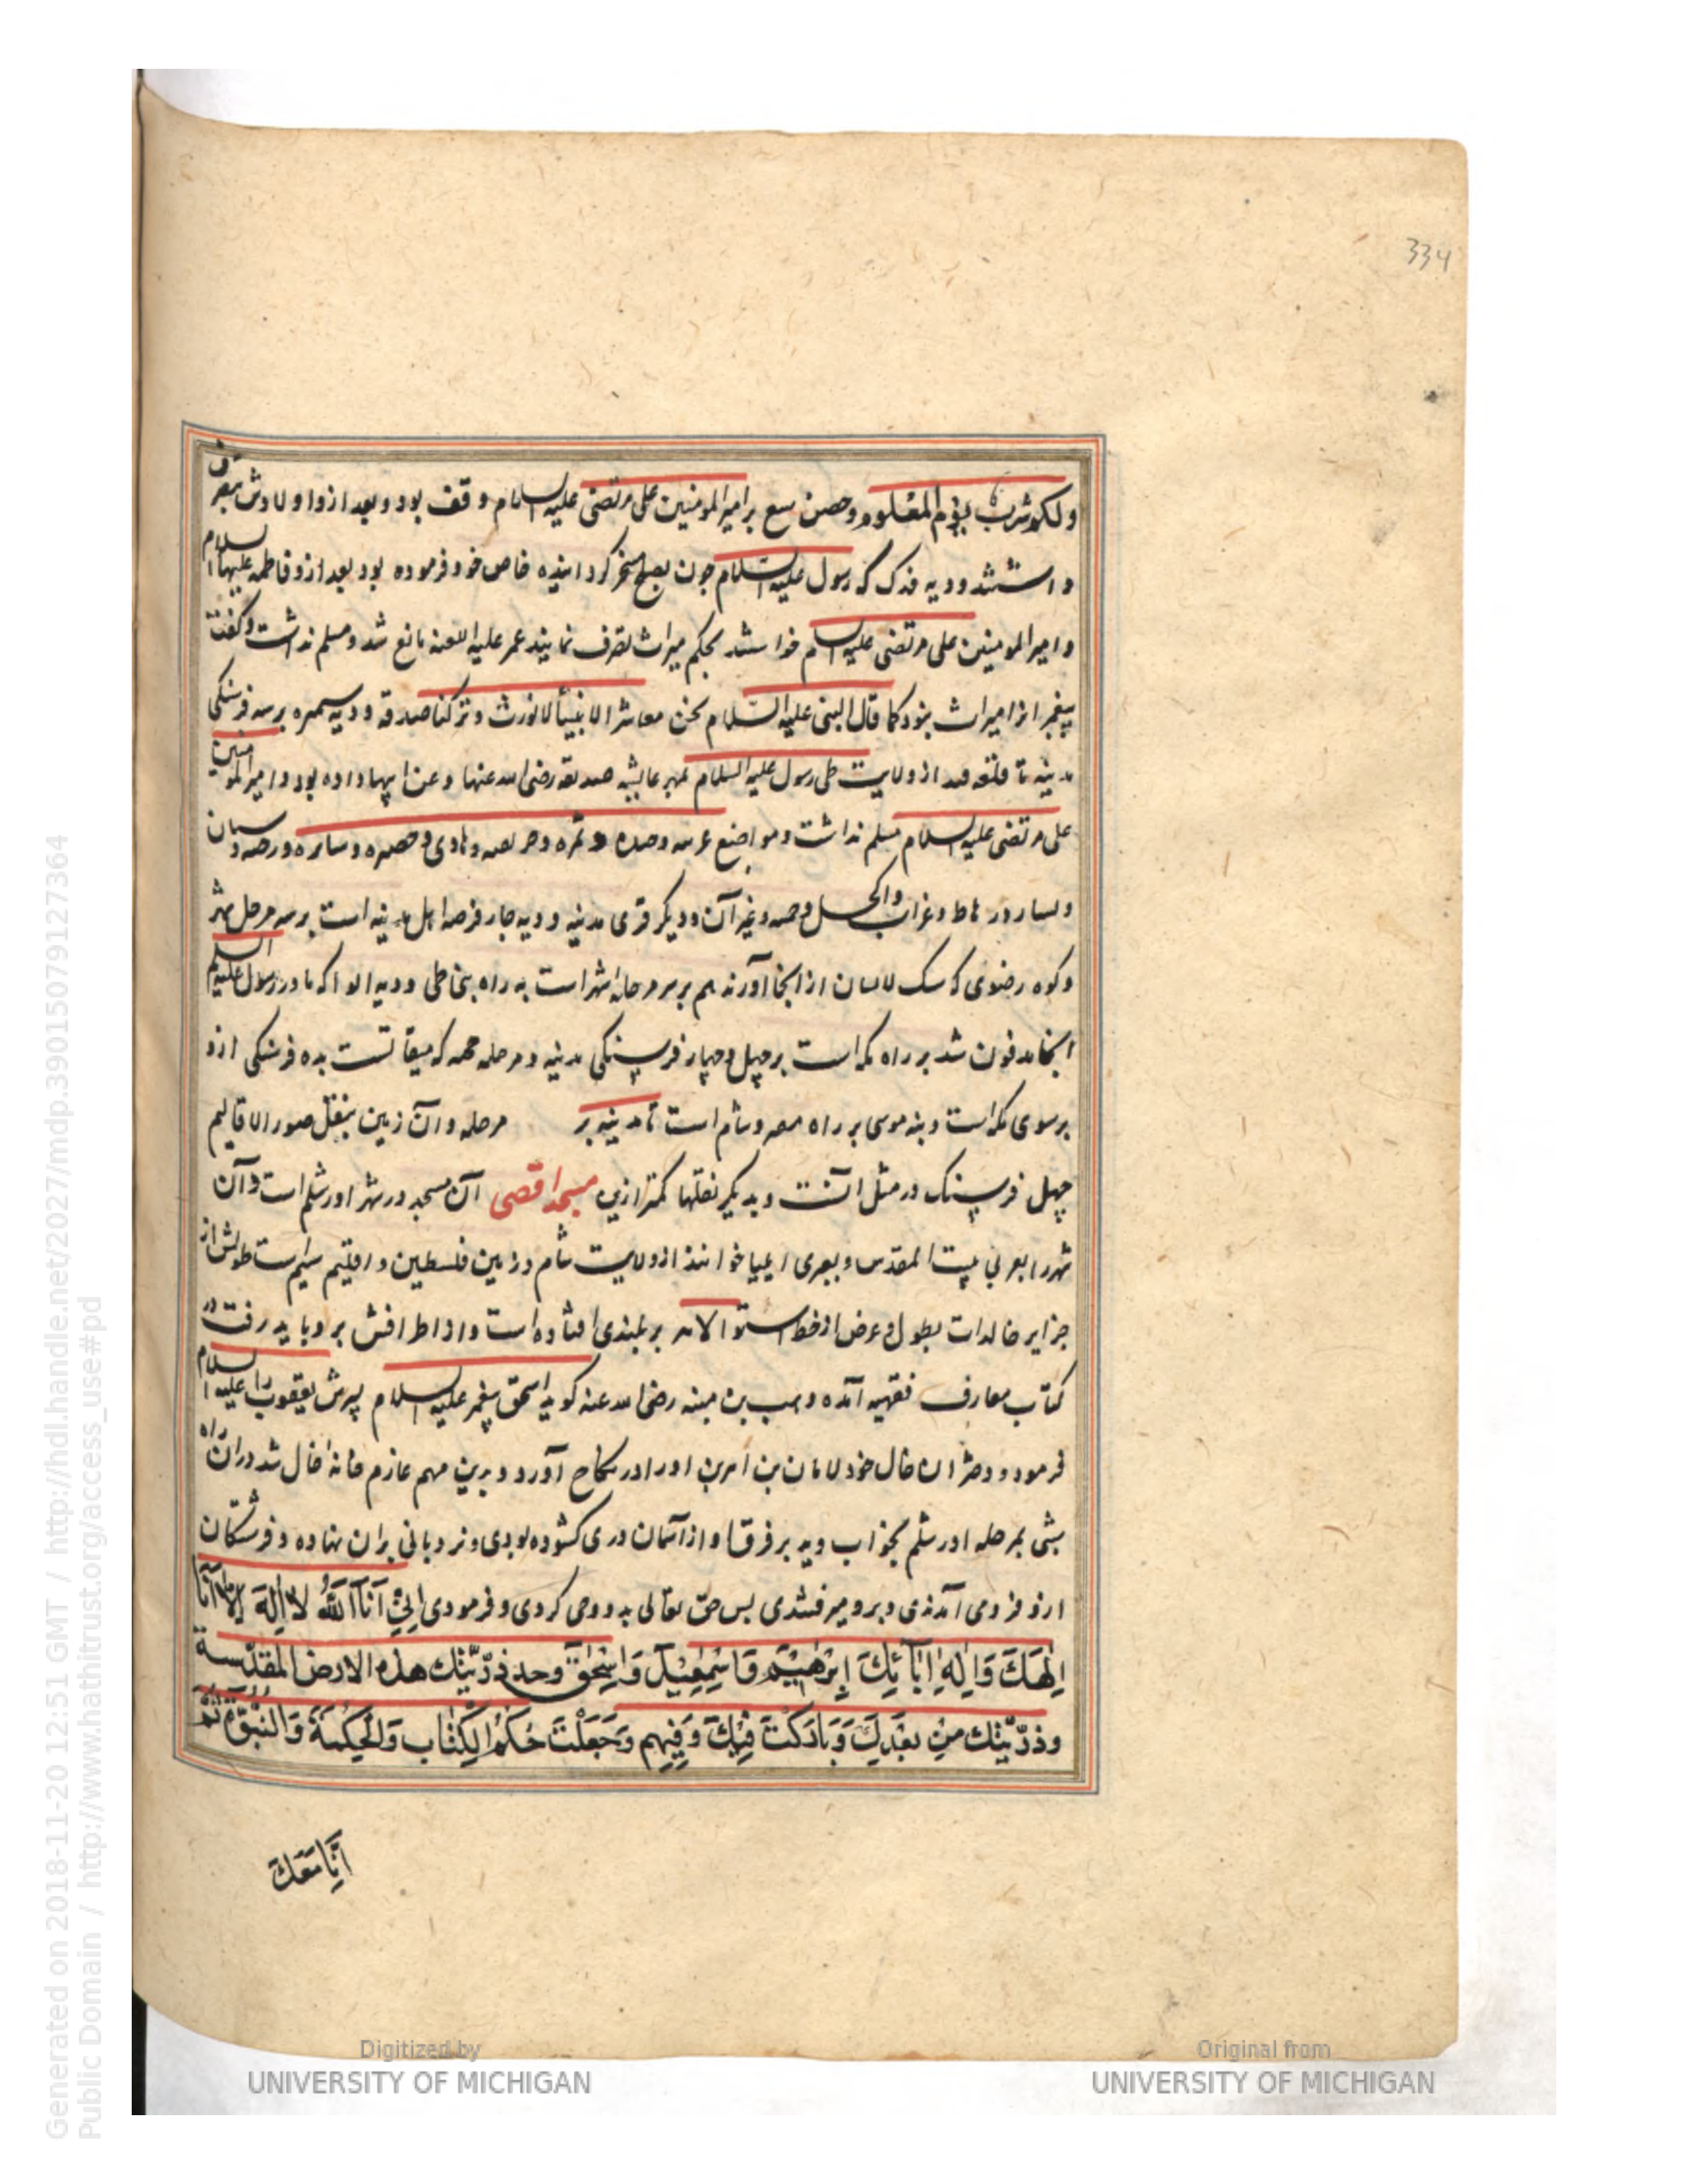 334
ولکم شرب یوم المعلوم وحصن سع بر امیر المومنین علی مرتضی علیه السلام وقف بود و بعد ازو اولادش متصرف
داشتند و دیه فدک که رسول علیه السلام چون بصلح مسخر کردانیده خاص خود فرموده بود بعد ازو فاطمه علیها السلام
و امیر المومنین علی مرتضی علیه السلام خواستند بحکم میراث تصرف نمایند عمر علیه اللعنه مانع شد و مسلم نداشت و کفت
پیغمبرانرا میراث بنود کما قال النبی علیه السلام نحن معاشر الانبیأ لا نورث و ترکنا صدقه و دیه سمیره بر سه فرسنکی
مدینه تا قلعه فید از ولایت طی رسول علیه السلام بمهر عایشه صدیقه رضی الله عنها و عن ابیها داده بود و امیر المومنین
علی مرتضی علیه السلام مسلم نداشت و مواضع عرسه وصده و نمره و وادی و
و غراب و غیر آن و دیکر قری مدینه و دیه جار فرضه اهل مدینه است بر سه مرحل شهر
و کوه رضوی که سنک از انجا آورند هم بر سر مرحله شهر است به راه بنی طی و دیه ابوا که مادر رسول علیه السلم
انجا مدفون شد بر راه مکه است بر چهل و چهار فرسنکی مدینه و مرحله جحمه که میقاتست بده فرسنکی ازو
بر سوی مکه است و بنه موسی بر راه مصر و شام است تا مدینه بر مرحله و آن زمین بنقل صور الاقالیم
چهل فرسنک در مثل آنست و بدیکر نقلها کمتر ازین مسجد اقصی آن مسجد در شهر اورشلم است و آن
شهر را بعربی بیت المقدس و بعبری ایلیا خوانند از ولایت شام و زمین فلسطین و اقلیم سیم است طولش از
جزایر خالدات بطول و عرض از خط استوا لا نه بر بلندی افتاده است و از اطرافش بر و باید رفت در
کتاب معارف فقهیه آمده وهب بن منبه رضی الله عنه کوید اسحق پیغمبر علیه السلام پسرش یعقوب را علیه السلام
فرمود دختران خال خود لابان بن را در نکاح آورد و بدین مهم عازم خانه خال شد دران راه
شبی بمرحله اورشلم بخواب دید بر فرق او از آسمان دری کشوده بودی و نردبانی بران نهاده و فرشتکان
ازو فرو می آمدندی و برو میرفتندی بس حق تعالی بدو وحی کردی و فرمودی اِنِّیْ اَنَا اللّٰهُ لَا اِلٰهَ اِلَّا اَنَا
اِلٰهَكَ وَاِلٰهِ اٰبَآئِكَ اِبْرٰهِیْمَ وَاِسْمٰعِیْلَ وَاِسْحٰقَ وحد ذرّیّتك هذه الارض المقدّسة
وذرّیّتك مِنْ بَعْدِكَ وَبَارَكْتُ فِیْكَ وَفِیْهِم وَجَعَلْتُ حُكْمَ الْكِتَاب وَالْحِكْمَةَ وَالنُّبُوَّة ثُمَّ
اَنَا مَعَكَ
Generated on 2018-11-20 12:51 GMT / http://hdl.handle.net/2027/mdp.39015079127364
Public Domain / http://www.hathitrust.org/access_use#pd
Digitized by
UNIVERSITY OF MICHIGAN
Original from
UNIVERSITY OF MICHIGAN